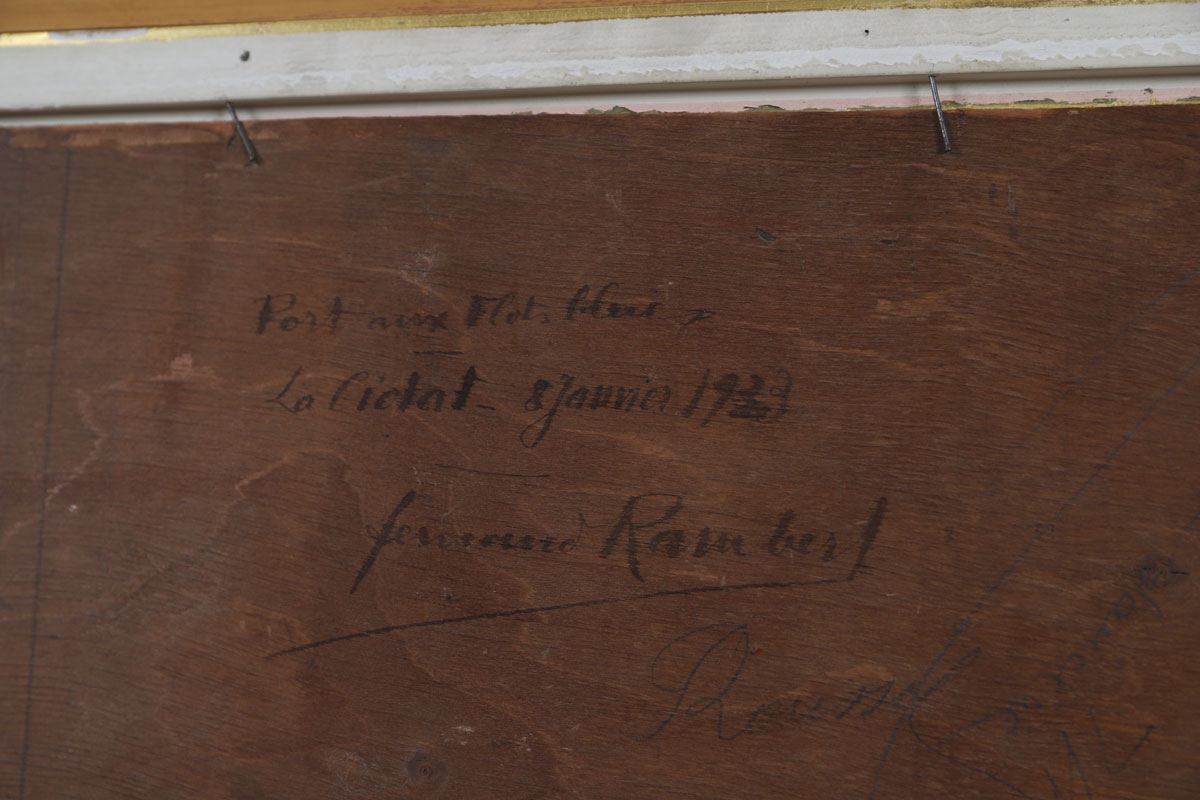 Port aux Flots bleus
La Ciotat - 8 Janvier 19
fernand Rambert